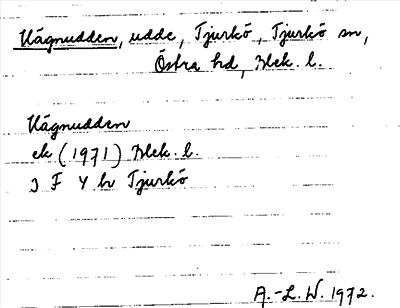 Vägnudden, udde, Tjurkö, Tjurkö sn,
Östra hd, Blek. l.
Vägnudden
ek (1971) Blek. l.
3 F Y br Tjurkö
A.-L. W. 1972.